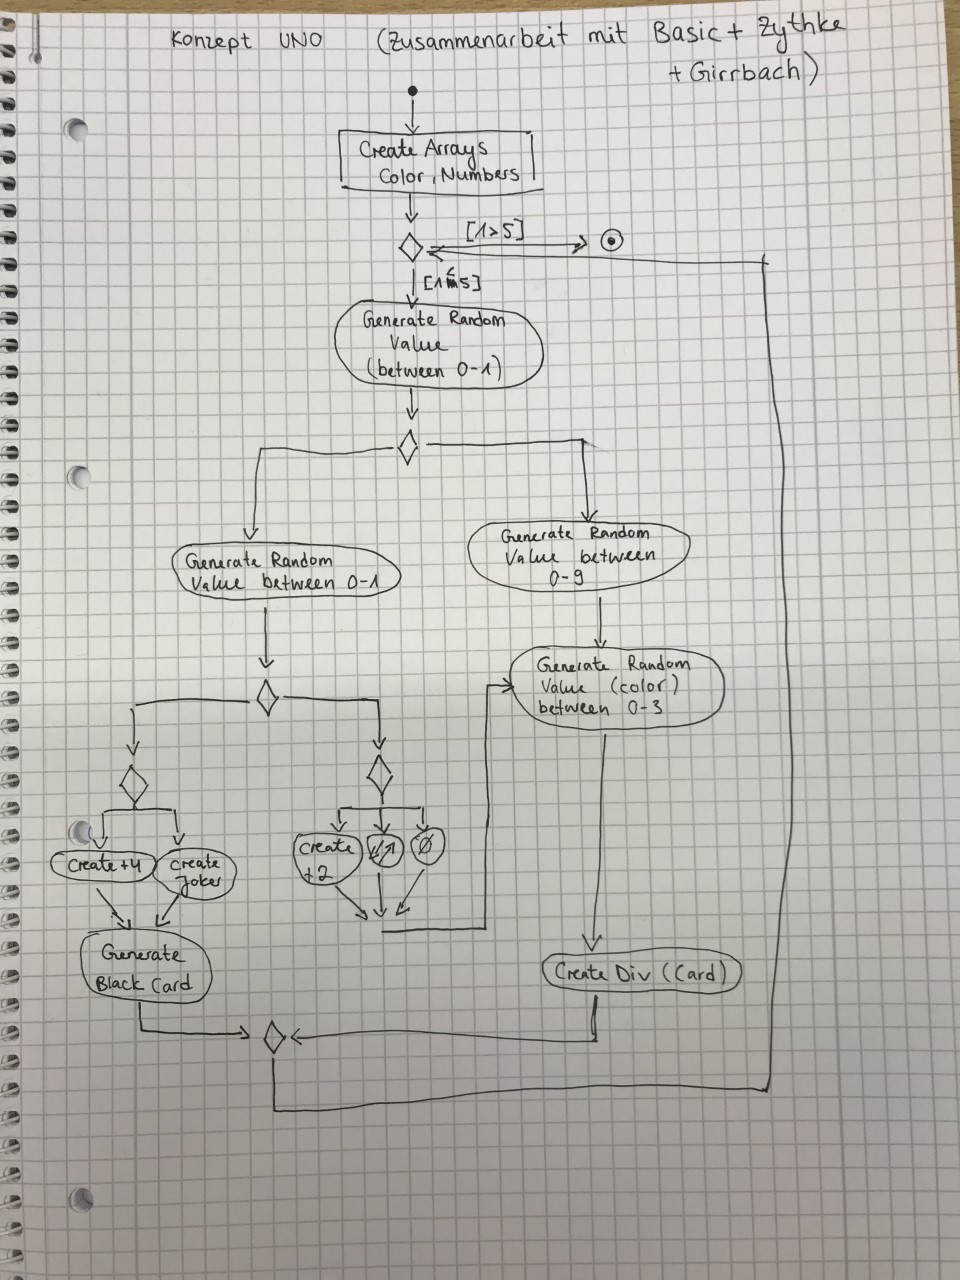 Konzept UNO (Zusammenarbeit mit Basic + Zythke
+ Girrbach)
Create Arrays
Color, Numbers
[1>5]
[1≤5]
Generate Random
Value
(between 0-1)
Generate Random
Value between 0-1
Generate Random
Value between
0-9
Generate Random
Value (color)
between 0-3
Create +4
create
Joker
Create
+2
Generate
Black Card
Create Div (Card)